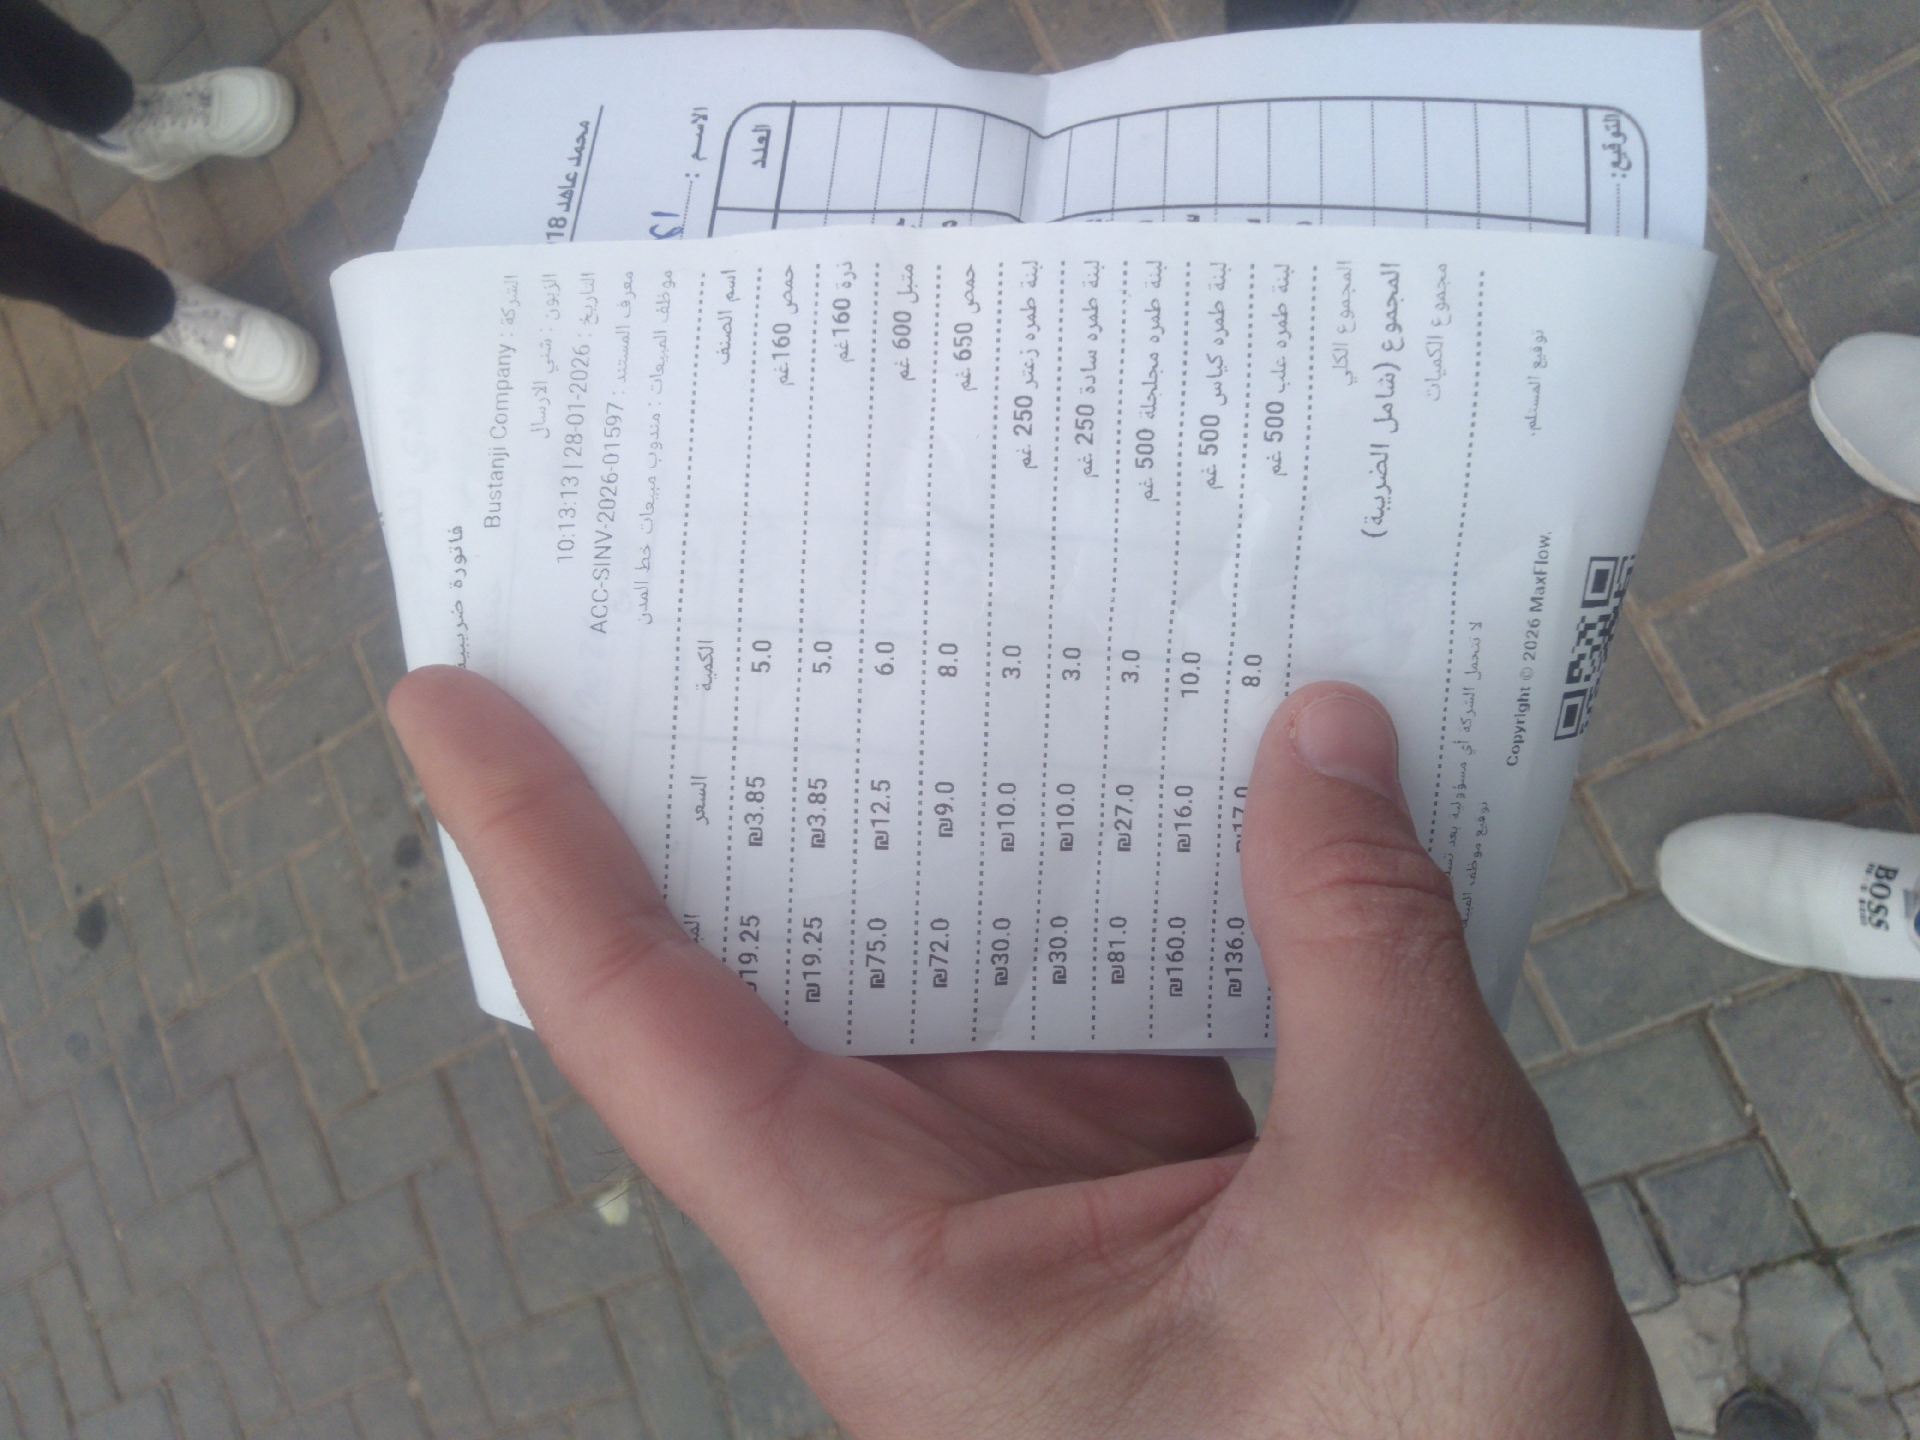 فاتورة ضريبية
الشركة : Bustanji Company
الزبون : شني الارسال
التاريخ : 28-01-2026 | 10:13:13
معرف المستند : ACC-SINV-2026-01597
موظف المبيعات : مندوب مبيعات خط المدن
اسم الصنف الكمية السعر
حمص 160 غم 5.0 ₪3.85 ₪19.25
ذرة 160 غم 5.0 ₪3.85 ₪19.25
متبل 600 غم 6.0 ₪12.5 ₪75.0
حمص 650 غم 8.0 ₪9.0 ₪72.0
لبنة طمره زعتر 250 غم 3.0 ₪10.0 ₪30.0
لبنة طمره سادة 250 غم 3.0 ₪10.0 ₪30.0
لبنة طمره مجلجلة 500 غم 3.0 ₪27.0 ₪81.0
لبنة طمره كياس 500 غم 10.0 ₪16.0 ₪160.0
لبنة طمره علب 500 غم 8.0 ₪17.0 ₪136.0
المجموع الكلي
المجموع (شامل الضريبة)
مجموع الكميات
لا تتحمل الشركة أي مسؤولية بعد
توقيع المستلم. توقيع موظف
Copyright © 2026 MaxFlow.
محمد عاهد 18
الاسم :
العدد
التوقيع:
BOSS